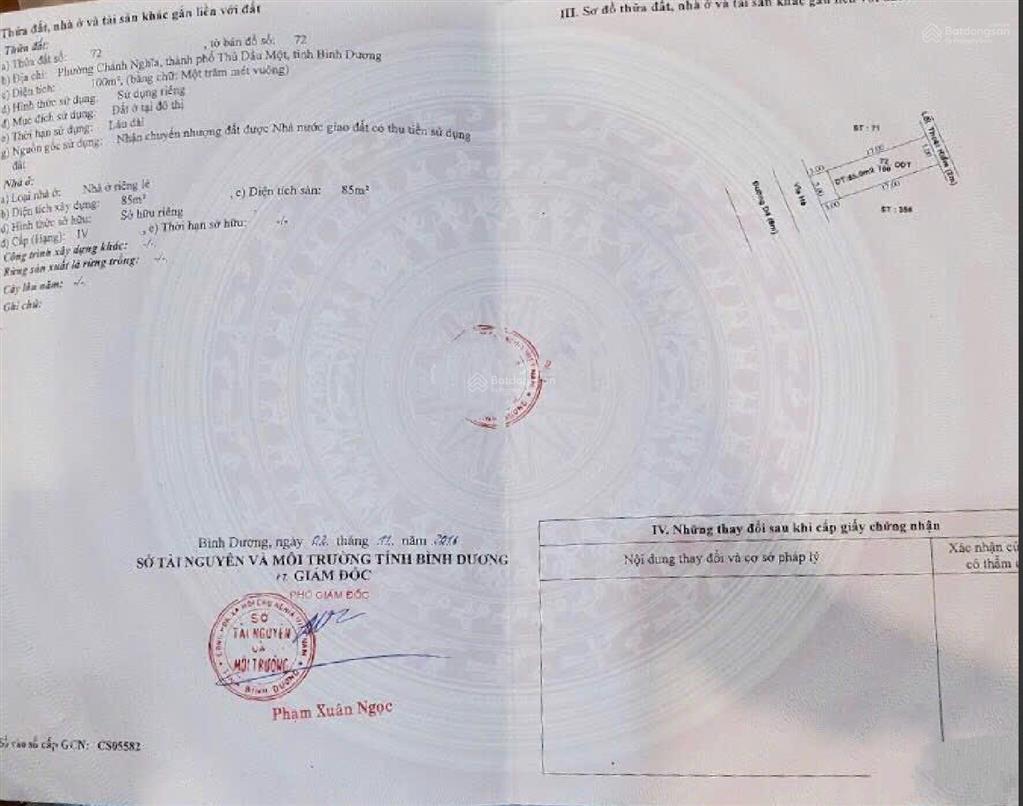 Thửa đất, nhà ở và tài sản khác gắn liền với đất
1. Thửa đất:
a) Thửa đất số: 72 , tờ bản đồ số: 72
b) Địa chỉ: Phường Chánh Nghĩa, thành phố Thủ Dầu Một, tỉnh Bình Dương
c) Diện tích: 100m², (bằng chữ: Một trăm mét vuông)
d) Hình thức sử dụng: Sử dụng riêng
đ) Mục đích sử dụng: Đất ở tại đô thị
e) Thời hạn sử dụng: Lâu dài
g) Nguồn gốc sử dụng: Nhận chuyển nhượng đất được Nhà nước giao đất có thu tiền sử dụng
đất
Nhà ở:
a) Loại nhà ở: Nhà ở riêng lẻ
b) Diện tích xây dựng: 85m² , c) Diện tích sàn: 85m²
d) Hình thức sở hữu: Sở hữu riêng
đ) Cấp (Hạng): IV , e) Thời hạn sở hữu: -/-
Công trình xây dựng khác: -/-
Rừng sản xuất là rừng trồng: -/-
Cây lâu năm: -/-
Ghi chú:
Bình Dương, ngày 02 tháng 11 năm 2016
SỞ TÀI NGUYÊN VÀ MÔI TRƯỜNG TỈNH BÌNH DƯƠNG
KT. GIÁM ĐỐC
PHÓ GIÁM ĐỐC
SỞ
TÀI NGUYÊN
VÀ
MÔI TRƯỜNG
BÌNH DƯƠNG
Phạm Xuân Ngọc
Số vào sổ cấp GCN: CS05582
III. Sơ đồ thửa đất, nhà ở và tài sản khác gắn liền với
Batdongsan
ST : 71
Lối Thoát Hiểm (2m)
17.00
3.00
5.00
72
DT:85.0m2 100 ODT
5.00
3.00
17.00
ST : 356
Vỉa Hè
Đường D4 (8m)
Batdongsan
IV. Những thay đổi sau khi cấp giấy chứng nhận
Nội dung thay đổi và cơ sở pháp lý
Xác nhận củ
có thẩm